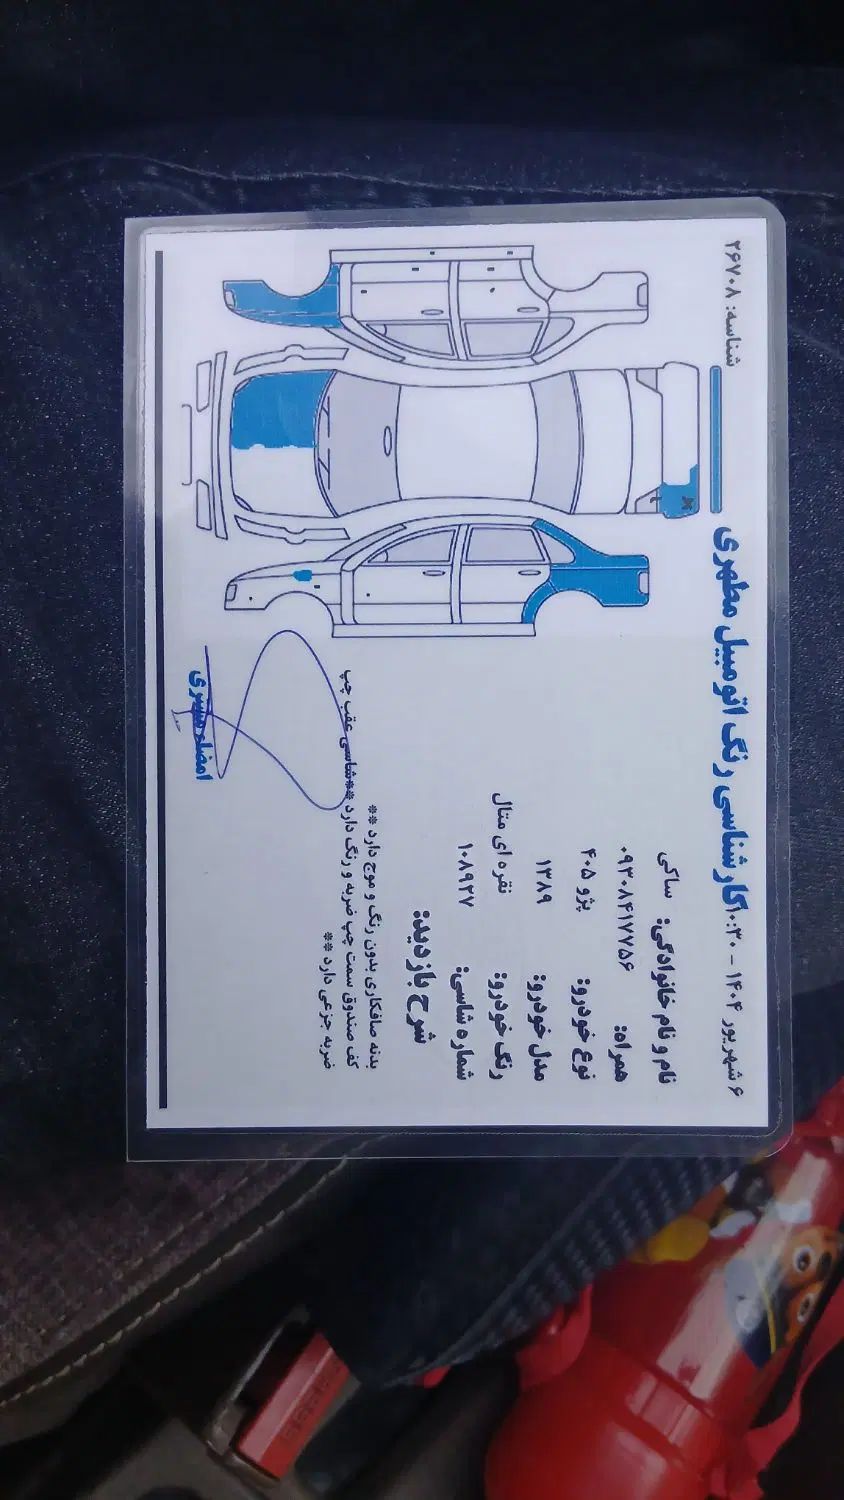 شناسه: ۲۶۷۰۸
کارشناسی رنگ اتومبیل مطهری
۶ شهریور ۱۴۰۴ - ۱۰:۳۰
نام و نام خانوادگی: ساکی
همراه: ۰۹۳۰۸۴۱۷۷۵۶
نوع خودرو: پژو ۴۰۵
مدل خودرو: ۱۳۸۹
رنگ خودرو: نقره ای متال
شماره شاسی: ۱۰۸۹۲۷
شرح بازدید:
بدنه صافکاری بدون رنگ و موج دارد **
کف صندوق سمت چپ ضربه و رنگ دارد **شاسی عقب چپ
ضربه جزعی دارد **
امضاء